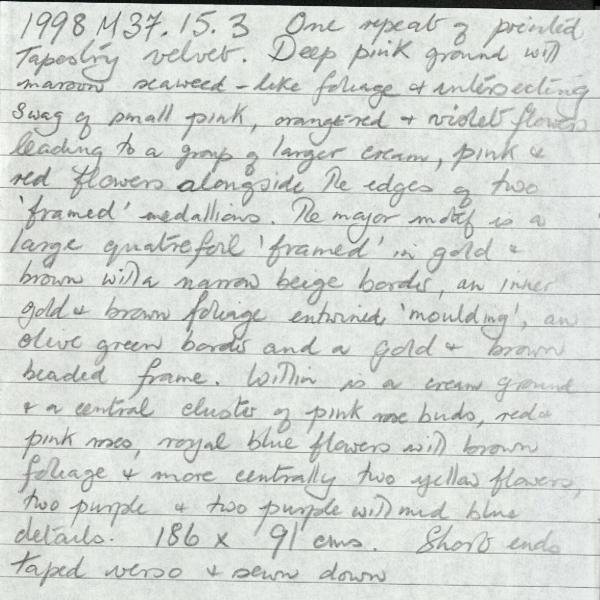 1998 M37.15.3 One repeat of printed
Tapestry velvet. Deep pink ground with
maroon seaweed-like foliage & intersecting
swag of small pink, orange-red & violet flowers
leading to a group of larger cream, pink &
red flowers alongside the edges of two
'framed' medallions. The major motif is a
large quatrefoil 'framed' in gold &
brown with a narrow beige border, an inner
gold & brown foliage entwined 'moulding', an
olive green border and a gold & brown
beaded frame. Within is a cream ground
& a central cluster of pink rose buds, red &
pink roses, royal blue flowers with brown
foliage & more centrally two yellow flowers,
two purple & two purple with mid blue
details. 186 x 91 cms. Short ends
taped verso & sewn down